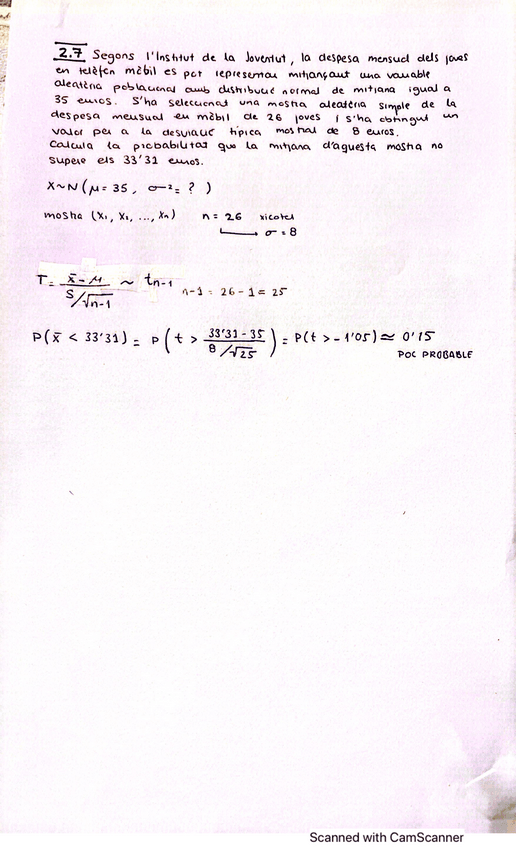 2.7 Segons l'Institut de la Joventut, la despesa mensual dels joves
en telèfon mòbil es pot representar mitjançant una variable
aleatòria poblacional amb distribució normal de mitjana igual a
35 euros. S'ha seleccionat una mostra aleatòria simple de la
despesa mensual en mòbil de 26 joves i s'ha obtingut un
valor per a la desviació típica mostral de 8 euros.
Calcula la probabilitat que la mitjana d'aquesta mostra no
superi els 33'31 euros.
X~N(μ=35, σ²=?)
mostra (X₁, X₂, ..., Xₙ) n = 26 xicotes
σ = 8
T = (x̄ - μ) / (S/√n-1) ~ tn-1 n-1 = 26-1 = 25
P(x̄ < 33'31) = P(t > (33'31-35) / (8/√25)) = P(t > -1'05) ≃ 0'15
POC PROBABLE
Scanned with CamScanner